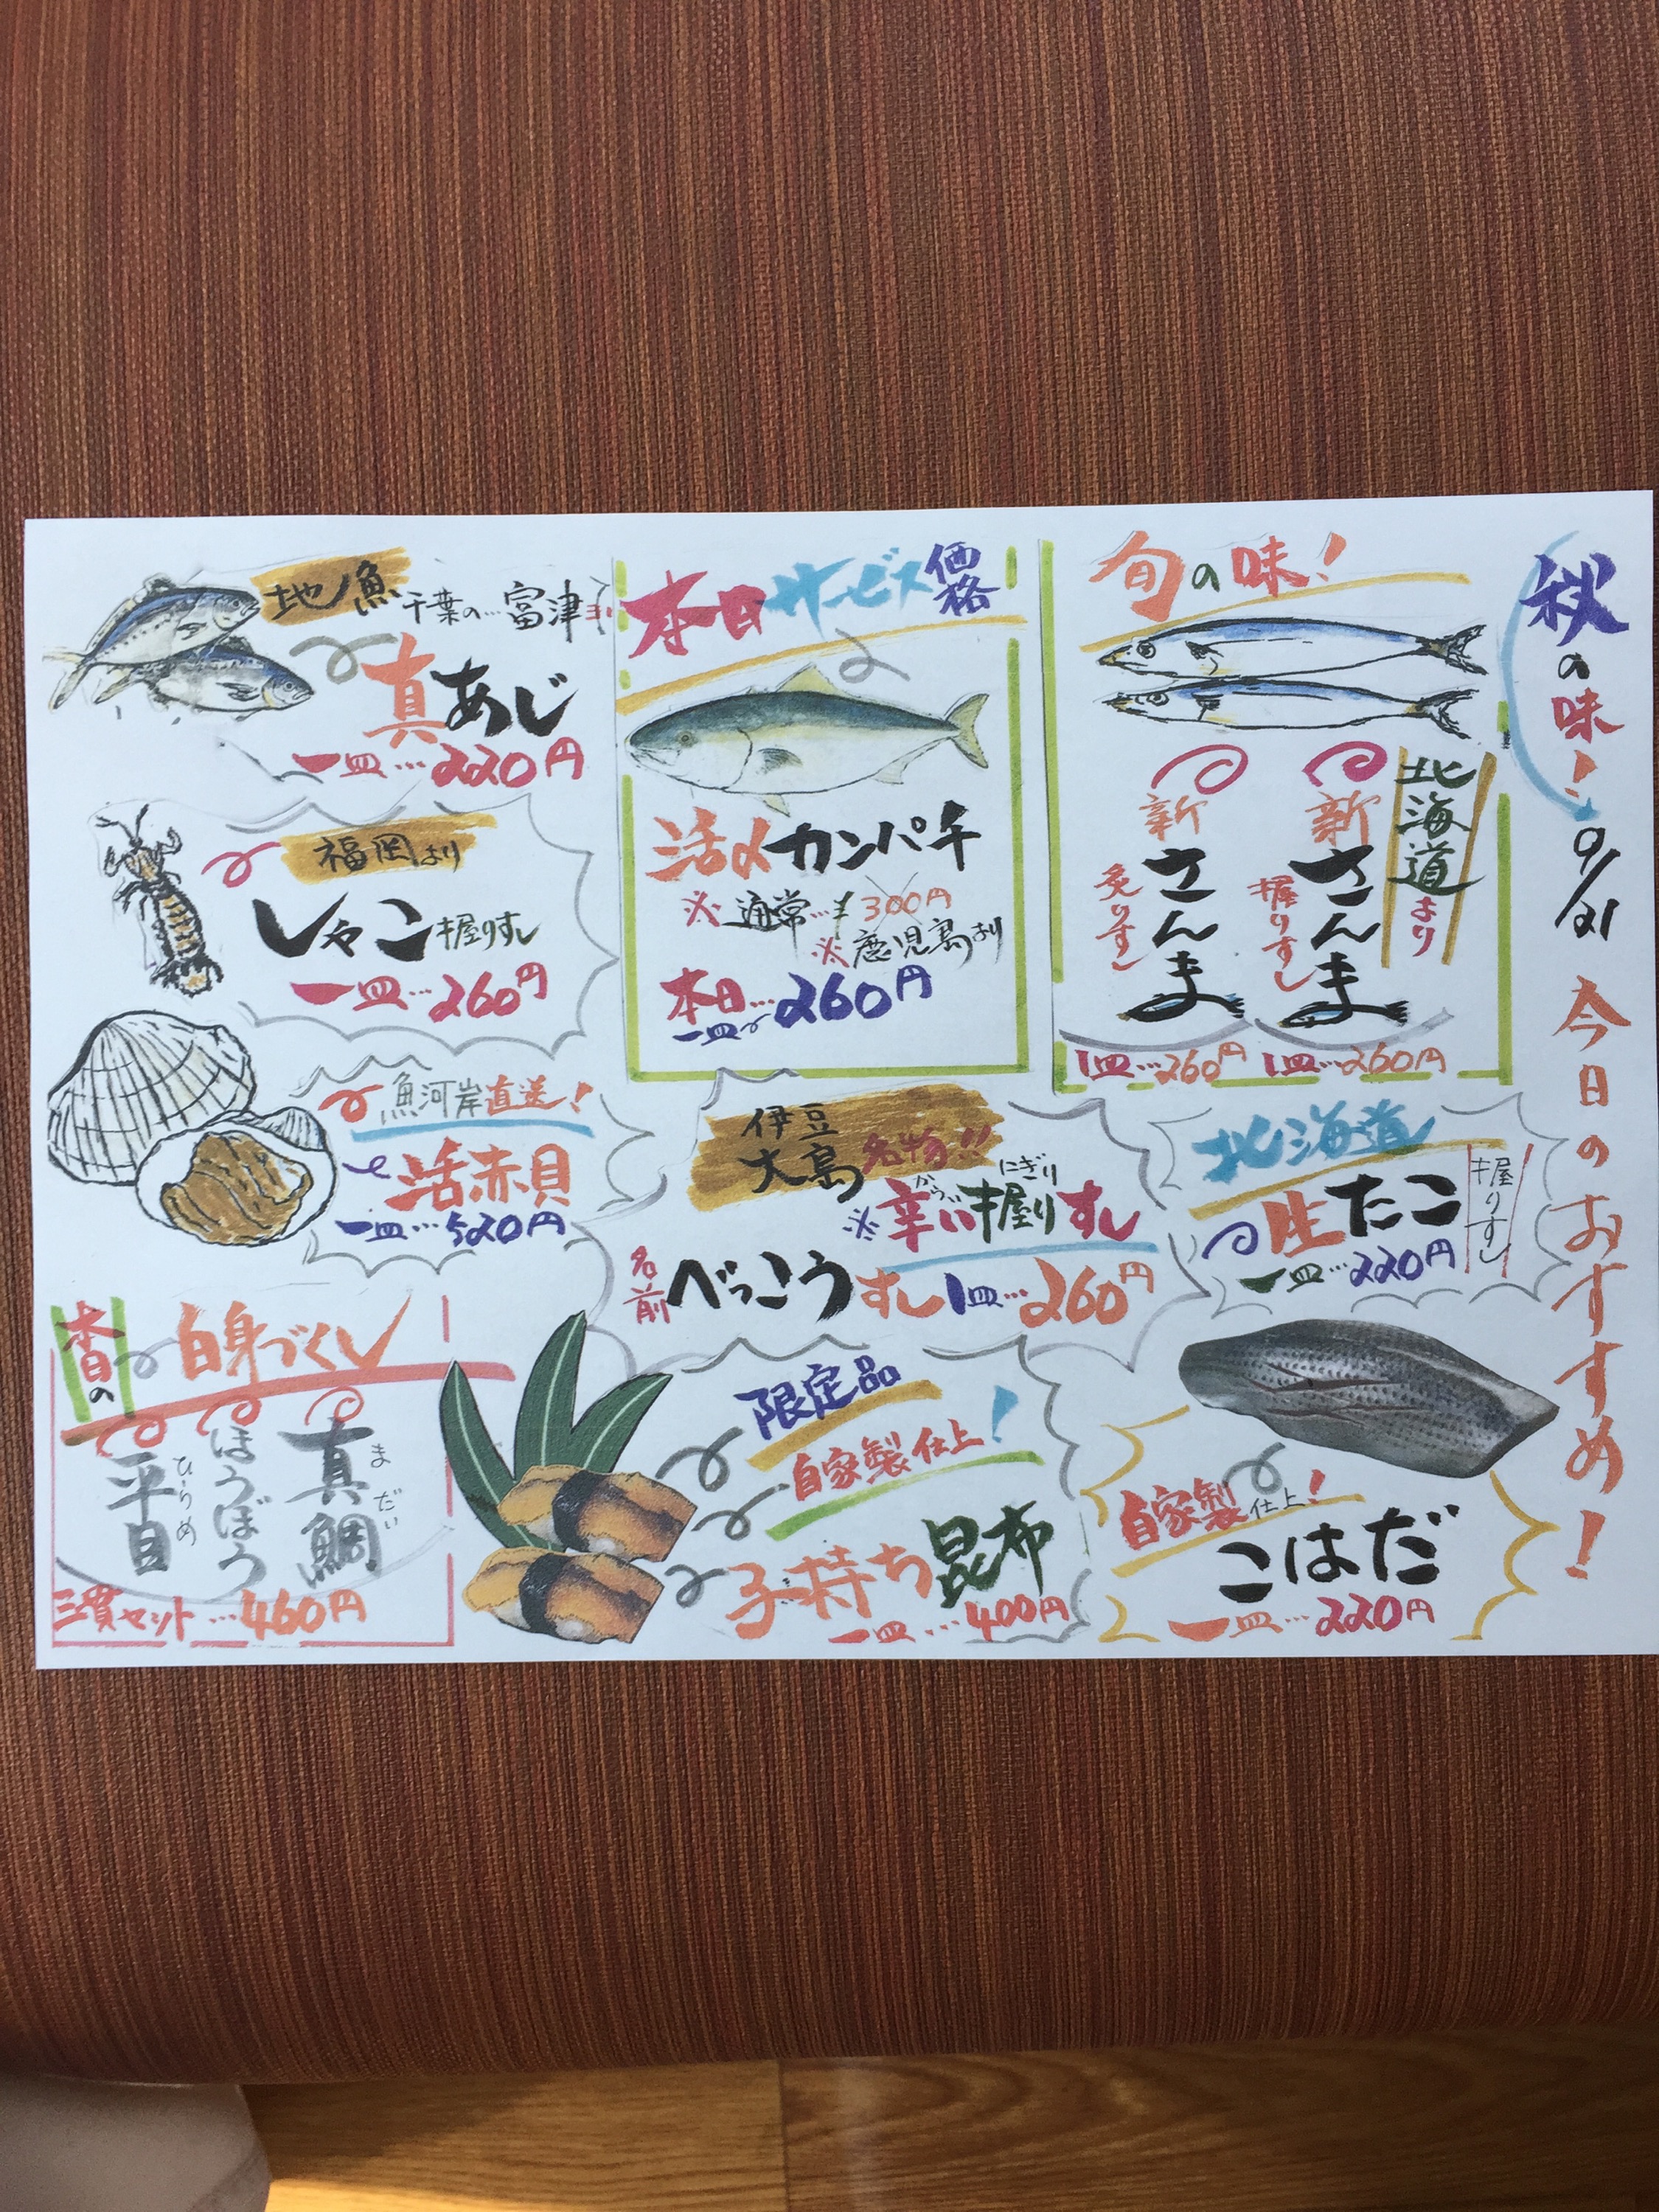 秋の味! 9/21 今日のおすすめ!
旬の味!
北海道より
新さんま
握りすし
1皿…260円
新さんま
炙りすし
1皿…260円
本日サービス価格
活〆カンパチ
※通常…300円
※鹿児島より
本日…
一皿 260円
地魚 千葉の…富津ヨリ
真あじ
一皿…220円
福岡より
しゃこ握りすし
一皿…260円
魚河岸直送!
活赤貝
一皿…520円
伊豆
大島名物!!
からい にぎり
※辛い握りすし
名前 べっこうすし 1皿…260円
北海道
生たこ
握りすし
一皿…220円
本日の白身づくし
真鯛
まだい
ほうぼう
平目
ひらめ
三貫セット…460円
限定品
自家製仕上!
子持ち昆布
一皿…400円
自家製仕上!
こはだ
一皿…220円